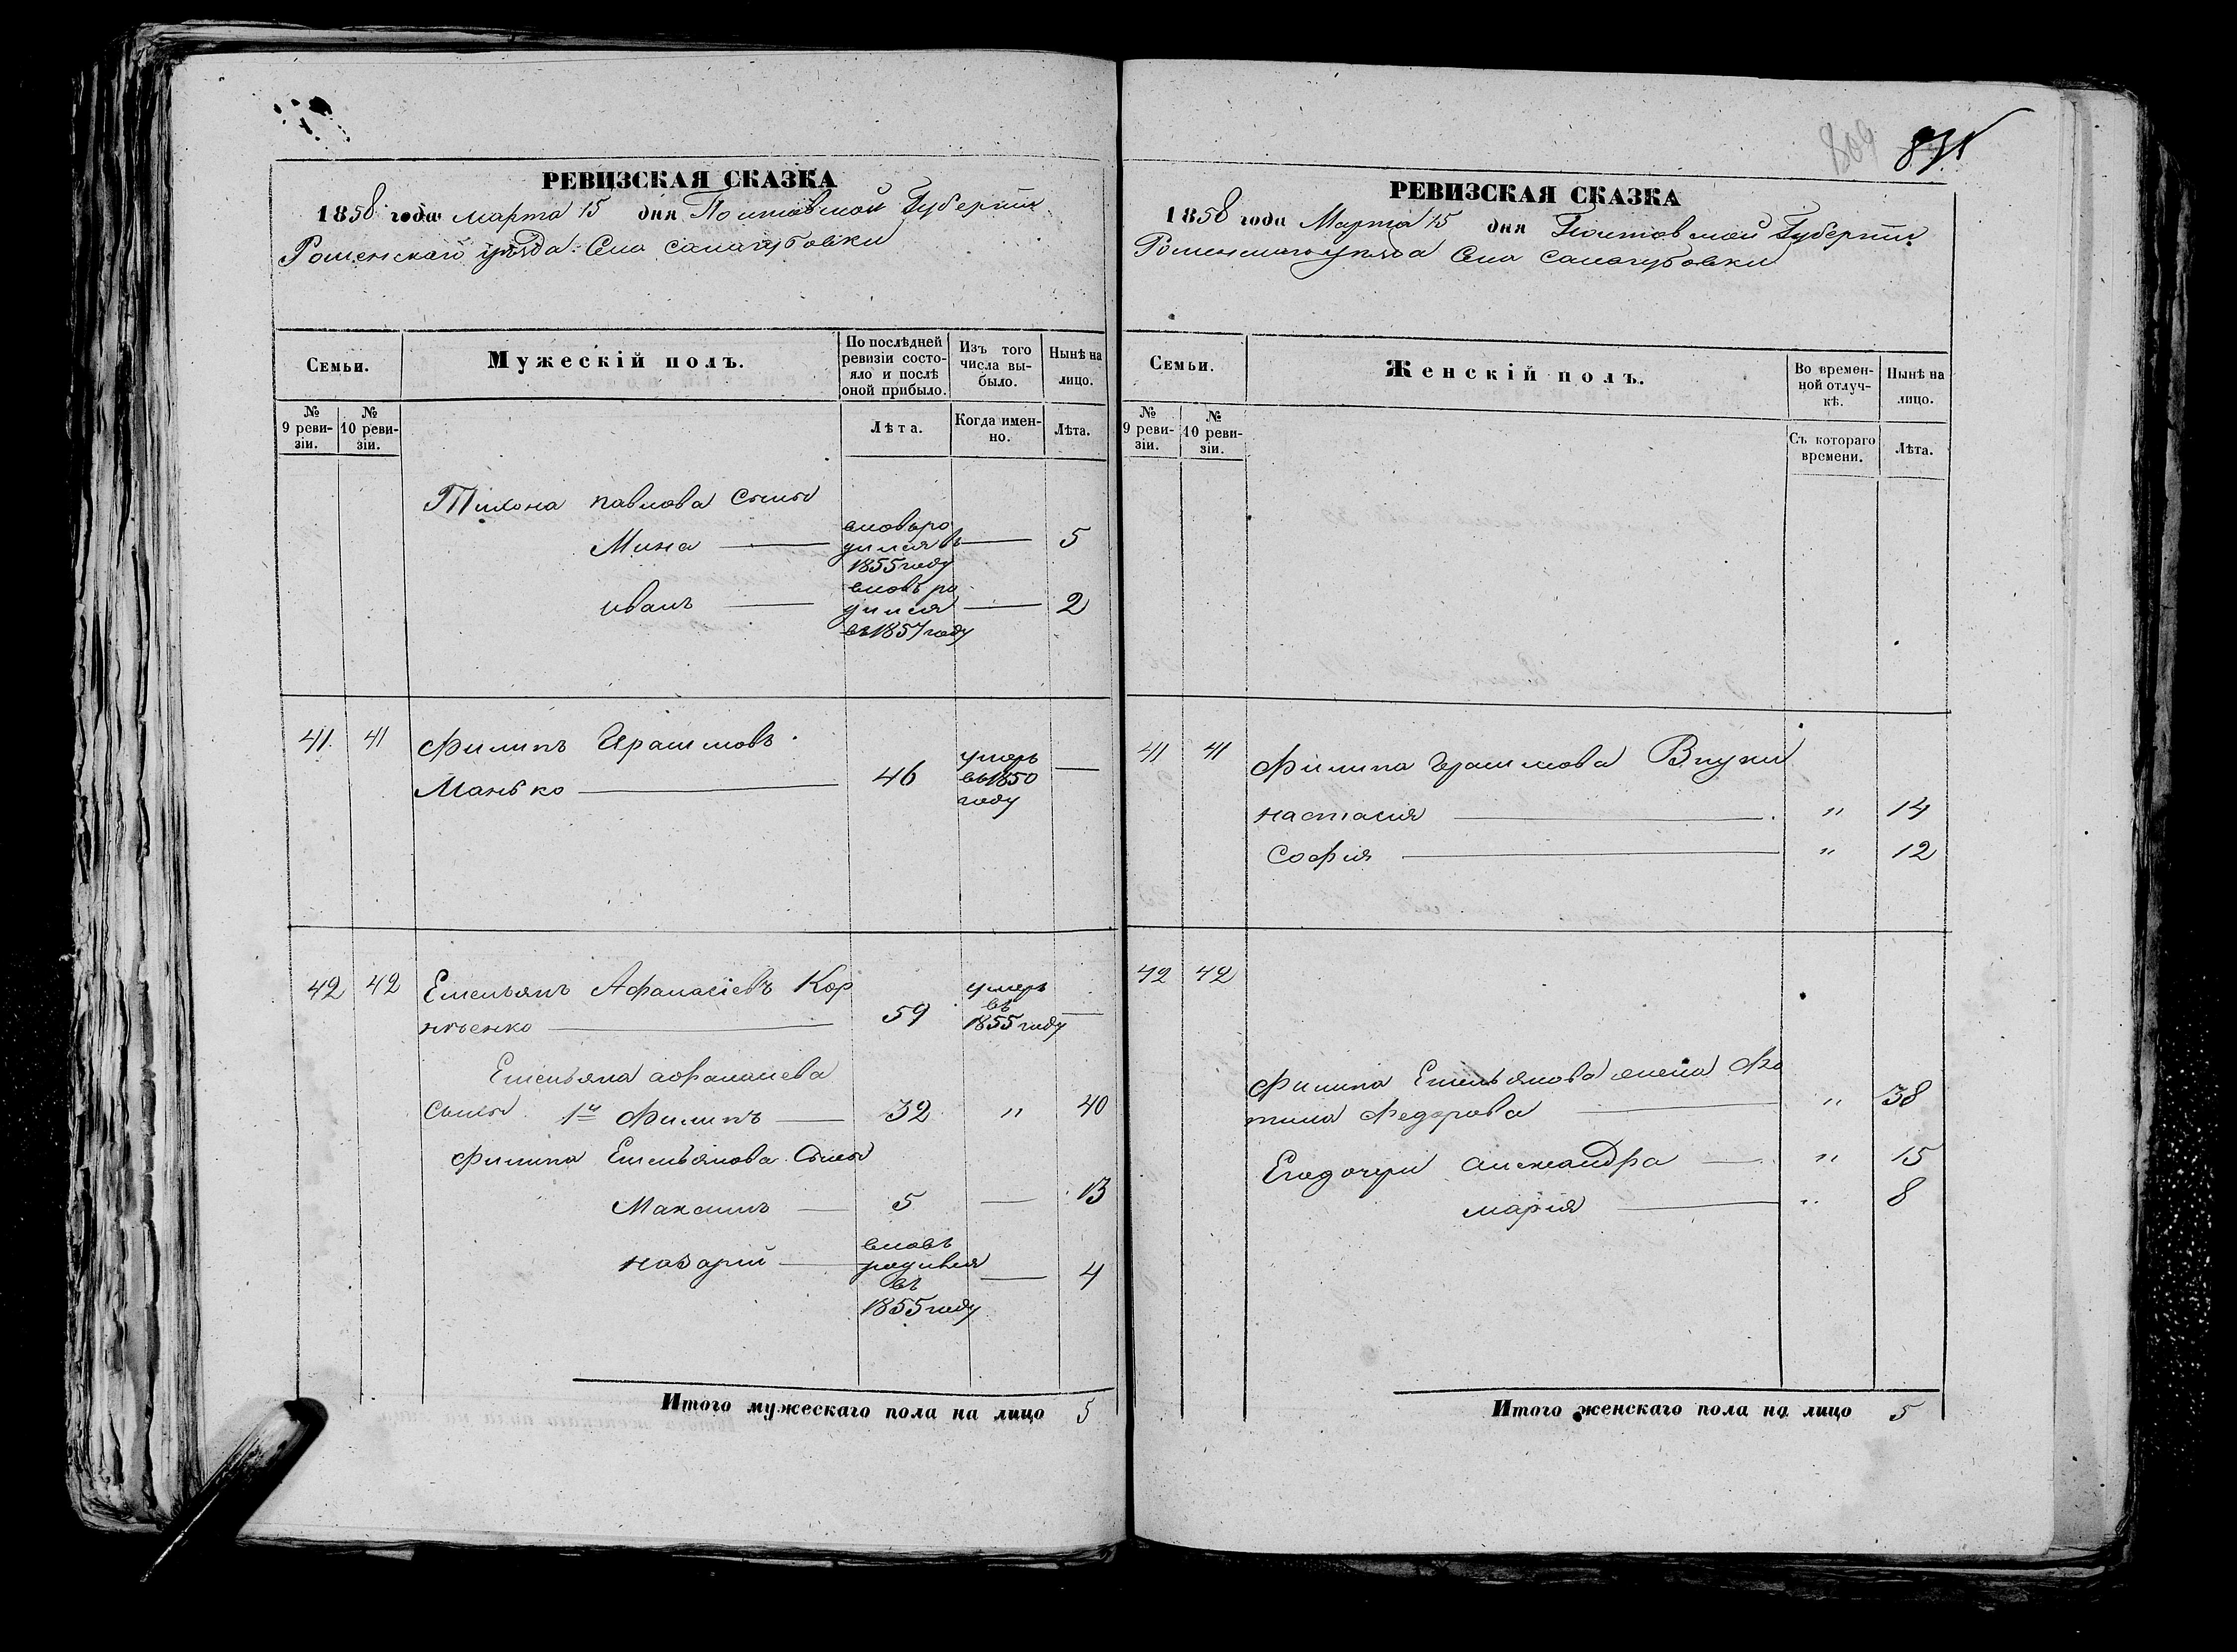 РЕВИЗСКАЯ СКАЗКА
1858 года марта 15 дня Полтавской Губерніи
Роменскаго уѣзда Села салогубовки
Семьи.
Мужескій полъ.
По послѣдней ревизіи состо-
яло и послѣ
оной прибыло.
Изъ того
числа вы-
было.
Нынѣ на
лицо.
№
9 реви-
зіи.
№
10 реви-
зіи.
Лѣта.
Когда имен-
но.
Лѣта.
Тихона павлова Сыны
Мина вновь ро
дился въ 5
1855 году
иванъ вновь ро
дился 2
въ 1857 году
41 41 Филипъ Герасимовъ
Манько 46 умеръ
въ 1850
году
42 42 Емельянъ Афанасіевъ Кор
нѣенко 59 умеръ
въ
1855 году
Емельяна афанасиева
Сыны 1й Филипъ 32 " 40
Филипа Емельянова Сыны
Максимъ 5 13
назарій вновь
родився
въ 4
1855 году
Итого мужескаго пола на лицо 5
809 871
РЕВИЗСКАЯ СКАЗКА
1858 года Марта 15 дня Полтавской Губерніи
Роменскаго уѣзда Села салогубовки
Семьи.
Женскій полъ.
Во времен-
ной отлуч-
кѣ.
Нынѣ на
лицо.
№
9 реви-
зіи.
№
10 реви-
зіи.
Съ котораго
времени.
Лѣта.
41 41 Филипа Герасимова Внуки
настасия " 14
София " 12
42 42
Филипа Емельянова жена Фо
тина Федорова " 38
Егодочери александра " 15
мария " 8
Итого женскаго пола на лицо 5